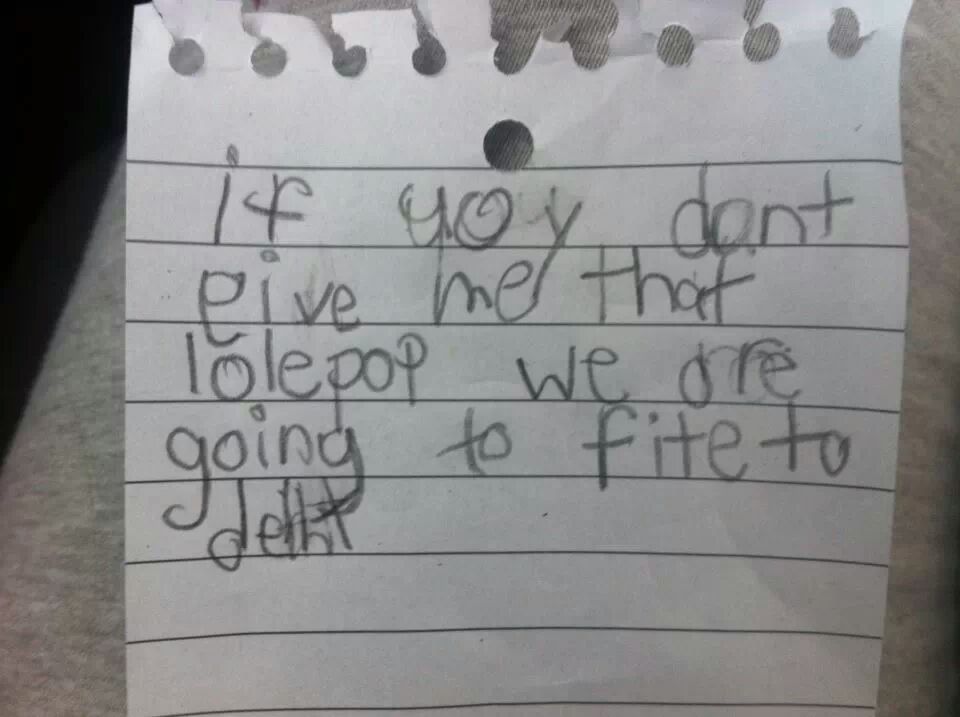 if yoy dont
give me that
lolepop we are
going to fite to